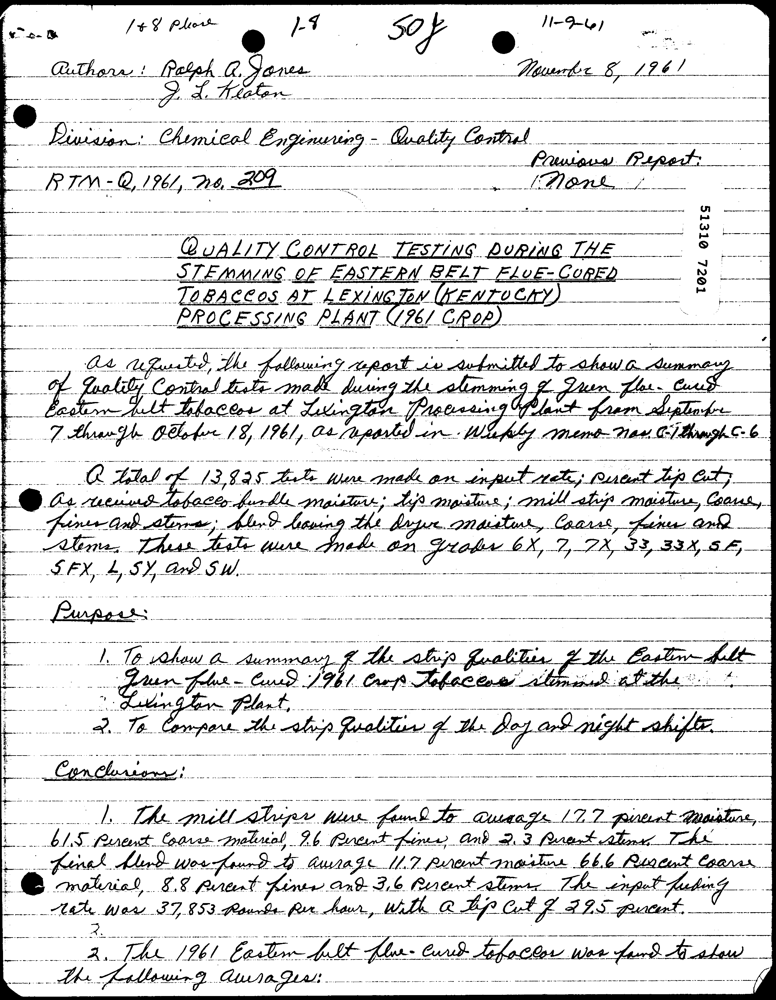 1+8 Phase 1-8 50¢ 11-9-61
Authors: Ralph A. Jones November 8, 1961
J. L. Keaton
Division: Chemical Engineering - Quality Control
Previous Report:
RTM-Q, 1961, no. 209 None
51310 7201
QUALITY CONTROL TESTING DURING THE
STEMMING OF EASTERN BELT FLUE-CURED
TOBACCOS AT LEXINGTON (KENTUCKY)
PROCESSING PLANT (1961 CROP)
As requested, the following report is submitted to show a summary
of Quality Control tests made during the stemming of green flue-cured
Eastern belt tobaccos at Lexington Processing Plant from September
7 through October 18, 1961, as reported in weekly memo nos. C-1 through C-6
A total of 13,825 tests were made on input rate; percent tip cut;
as received tobacco bundle moisture; tip moisture; mill strip moisture, coarse,
fines and stems; blend leaving the dryer moisture, coarse, fines and
stems. These tests were made on grades 6X, 7, 7X, 33, 33X, 5F,
5FX, L, 5Y, and 5W.
Purpose:
1. To show a summary of the strip qualities of the Eastern belt
green flue-cured 1961 crop tobaccos stemmed at the
Lexington Plant.
2. To compare the strip qualities of the day and night shifts.
Conclusions:
1. The mill strips were found to average 17.7 percent moisture,
61.5 percent coarse material, 9.6 percent fines, and 2.3 percent stems. The
final blend was found to average 11.7 percent moisture 66.6 percent coarse
material, 8.8 percent fines and 3.6 percent stems. The input feeding
rate was 37,853 pounds per hour, with a tip cut of 29.5 percent.
2.
2. The 1961 Eastern belt flue-cured tobaccos was found to show
the following averages: